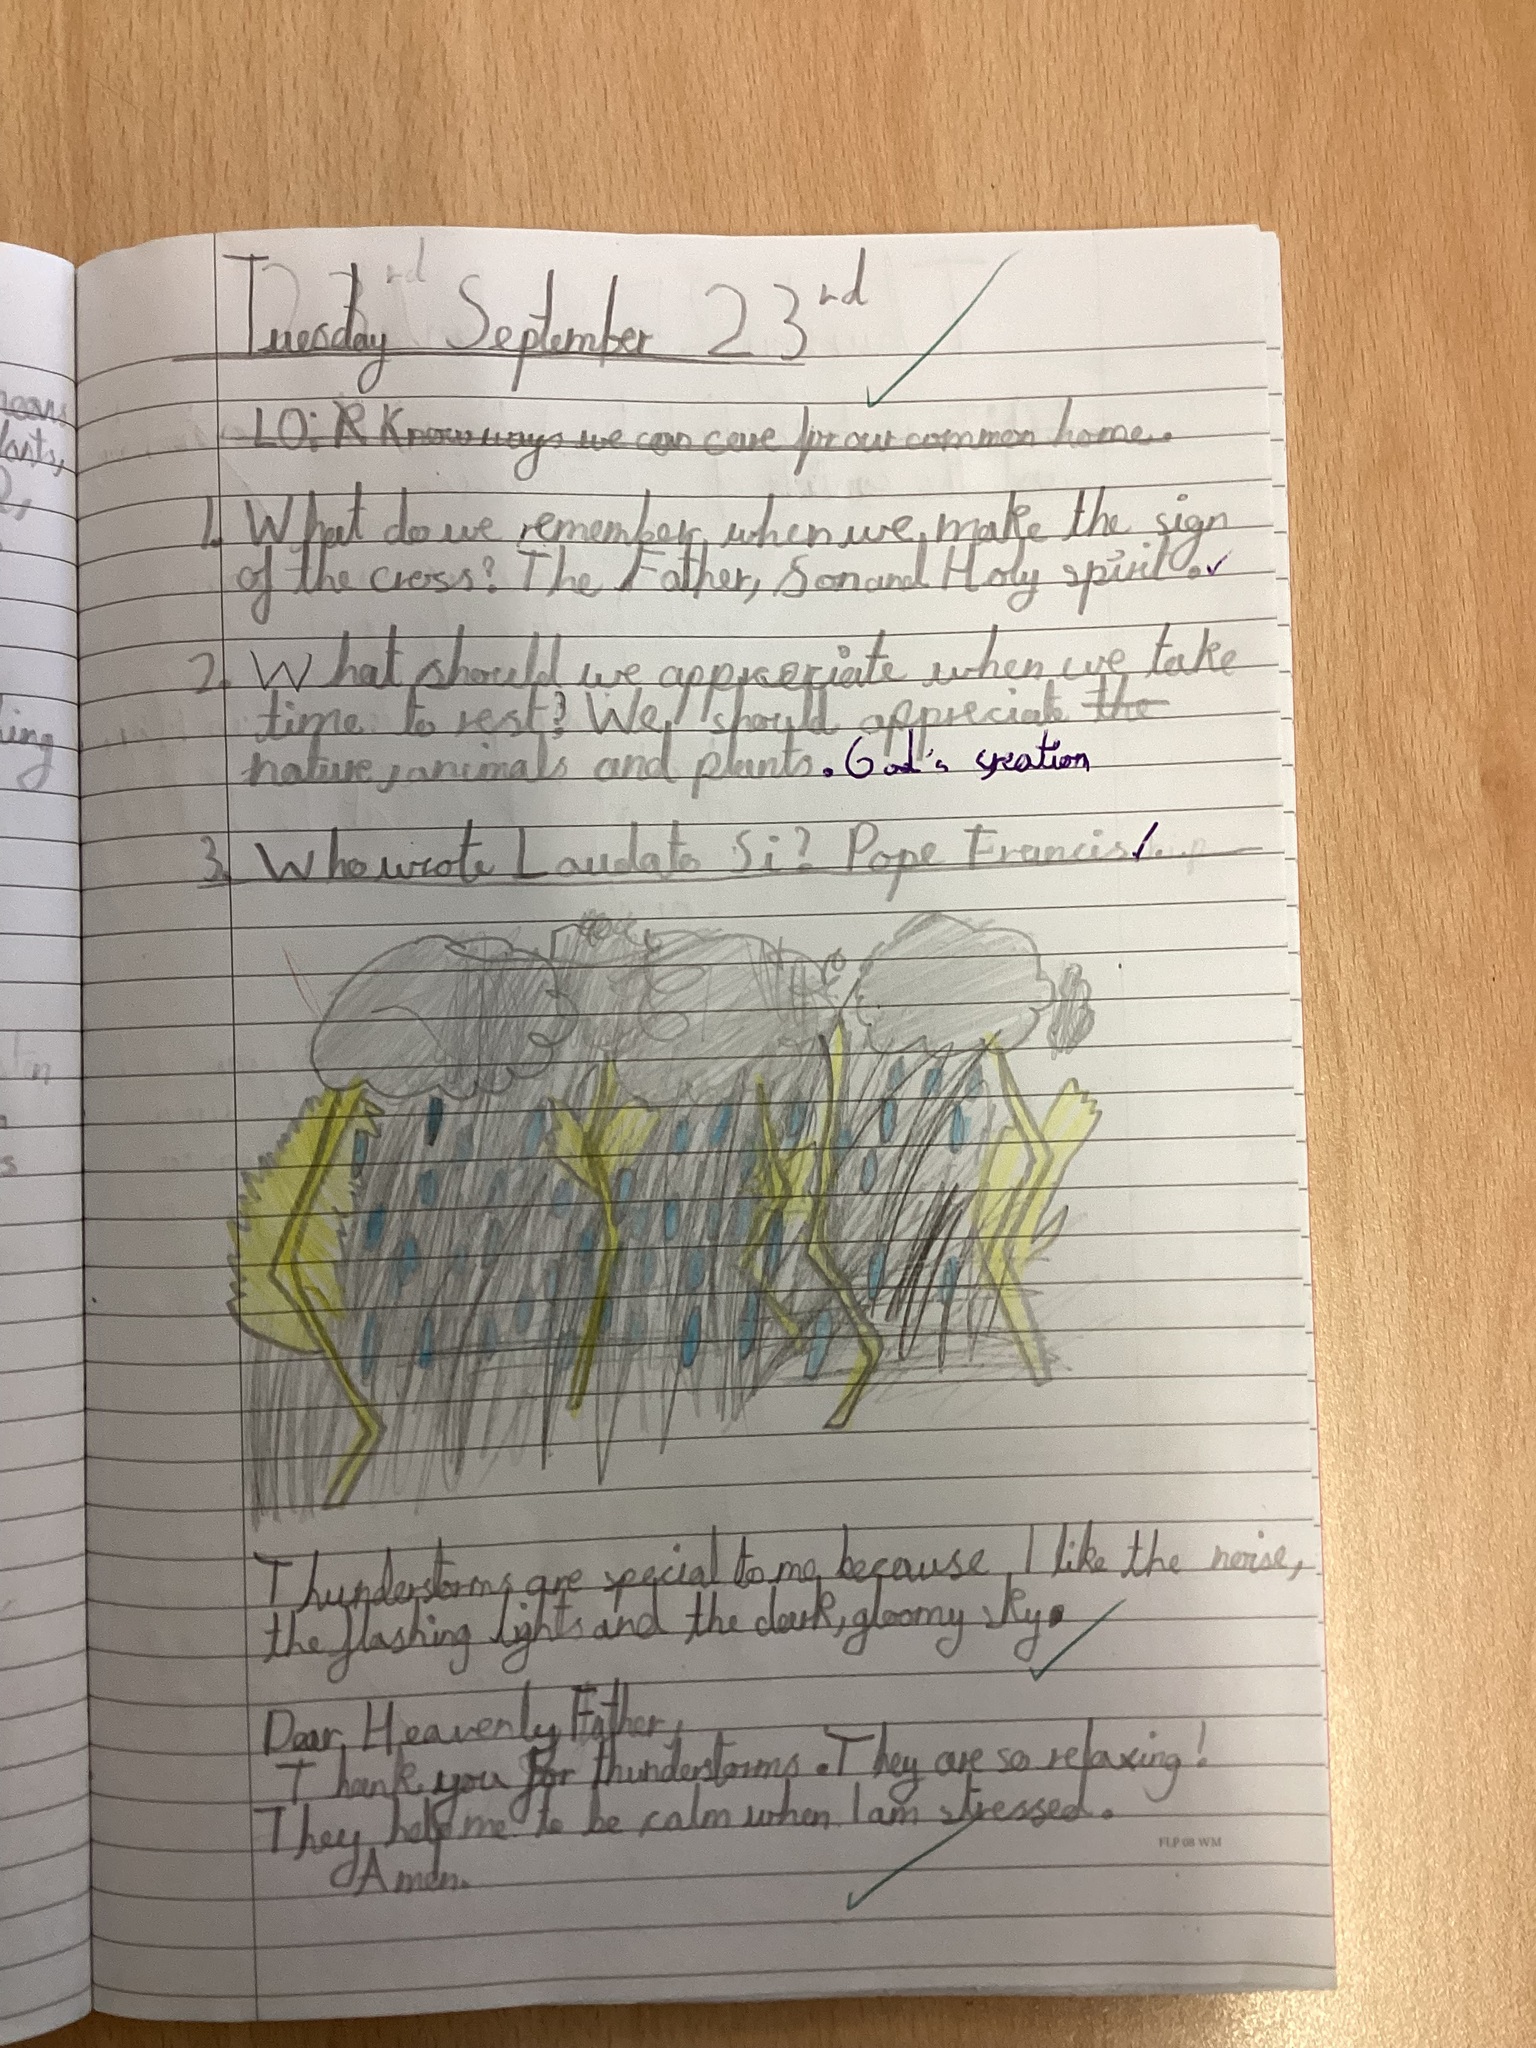 Tuesday September 23rd
LO: R Know ways we can care for our common home.
1. What do we remember when we make the sign
of the cross? The Father, Son and Holy spirit.
2. What should we appreciate when we take
time to rest? We should appreciate the
nature, animals and plants. God's creation
3. Who wrote Laudato Si? Pope Francis
Thunderstorms are special to me because I like the noise,
the flashing lights and the dark, gloomy sky.
Dear Heavenly Father,
Thank you for thunderstorms. They are so relaxing!
They help me to be calm when I am stressed.
Amen.
FLP 08 WM